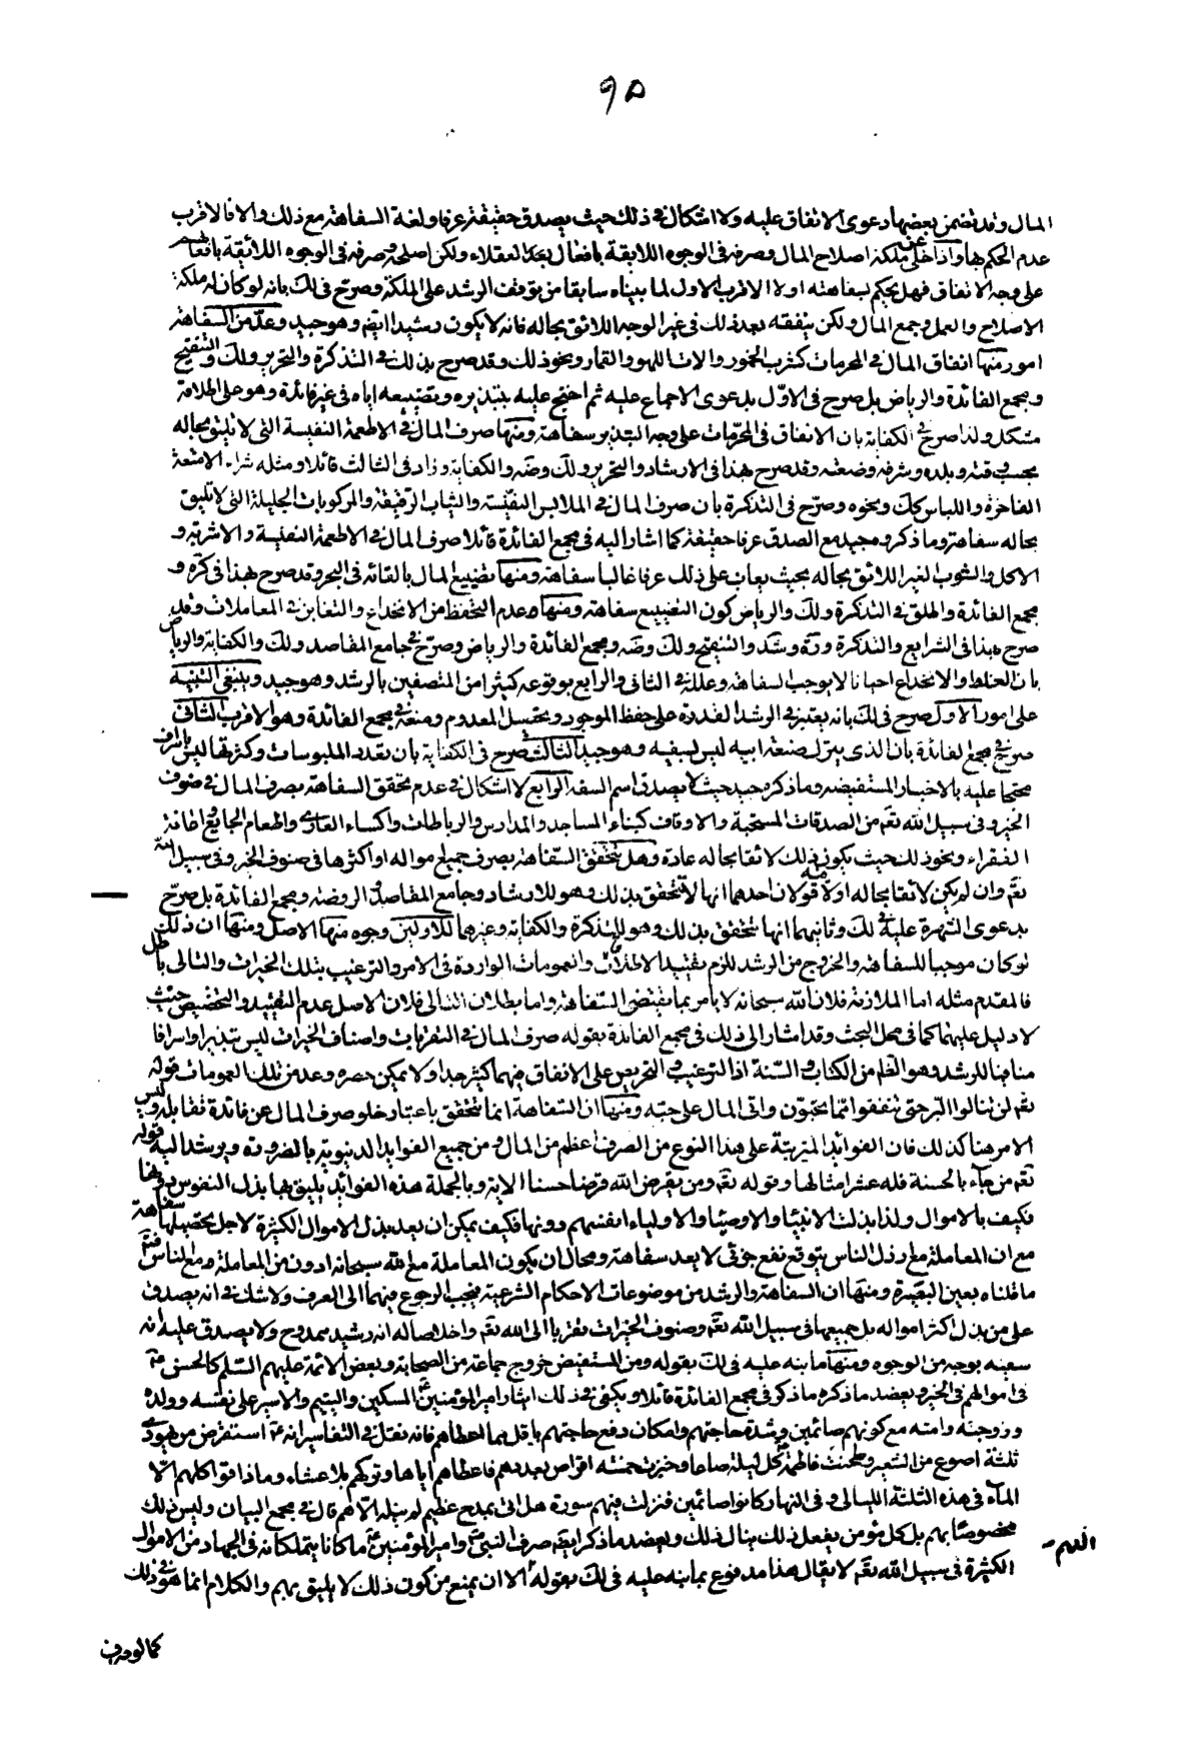 ٩٥
المال وقد تضمن بعضها دعوى الاتفاق عليه ولا اشكال في ذلك حيث يصدق حقيقة عرفا ولغة السفاهة مع ذلك والا فالاقرب
عدم الحكم بها واذا خلى عن ملكة اصلاح المال وصرفه في الوجوه اللايقة بافعال العقلاء ولكن اصلحه وصرفه في الوجوه اللائقة بافعالهم
على وجه الاتفاق فهل يحكم بسفاهته اولا الاقرب الاول لما بيناه سابقا من توقف الرشد على الملكة وصرح في لك بانه لو كان له ملكة
الاصلاح والعمل وجمع المال ولكن ينفقه بعد ذلك في غير الوجه اللائق بحاله فانه لا يكون رشيدا ايضم وهو جيد وعد من السفاهة
امور منها انفاق المال في المحرمات كشرب الخمور والات اللهو والقمار ونحو ذلك وقد صرح بذلك في التذكرة والتحرير ولك والتنقيح
ومجمع الفائدة والرياض بل صرح في الاول بدعوى الاجماع عليه ثم احتج عليه بتبذيره وتضييعه اياه في غير فائدة وهو على اطلاقه
مشكل ولذا صرح في الكفاية بان الانفاق في المحرمات على وجه التبذير سفاهة ومنها صرف المال في الاطعمة النفيسة التي لا تليق بحاله
بحسب وقته وبلده وشرفه وضعته وقد صرح بهذا في الارشاد والتحرير ولك وضه والكفاية وزاد في الثالث قائلا ومثله شراء الامتعة
الفاخرة واللباس كك ونحوه وصرح في التذكرة بان صرف المال في الملابس النفيسة والثياب الرفيعة والمركوبات الجليلة التي لا تليق
بحاله سفاهة وما ذكروه جيد مع الصدق عرفا حقيقة كما اشار اليه في مجمع الفائدة قائلا صرف المال في الاطعمة النفيسة والاشربة و
الاكل والثوب الغير اللائق بحاله بحيث يعاب على ذلك عرفا غالبا سفاهة ومنها تضييع المال بالقائه في البحر وقد صرح بهذا في كره و
مجمع الفائدة واطلق في التذكرة ولك والرياض كون التضييع سفاهة ومنها عدم التحفظ من الانخداع والتغابن في المعاملات وقد
صرح بهذا في الشرايع والتذكرة وره وشد والتنقيح ولك وضه ومجمع الفائدة والرياض وصرح في جامع المقاصد ولك والكفاية والرياض
بان الغلط والانخداع احيانا لا يوجب السفاهة وعلله في الثاني والرابع بوقوعه كثيرا من المتصفين بالرشد وهو جيد وينبغي التنبيه
على امور الاول صرح في لك بانه يعتبر في الرشد القدرة على حفظ الموجود وتحصيل المعدوم ومنعه في مجمع الفائدة وهو الاقرب الثاني
صرح في مجمع الفائدة بان الذي يترك صنعة ابيه ليس بسفيه وهو جيد الثالث صرح في الكفاية بان تعدد الملبوسات وكثرتها ليس باسراف
محتجا عليه بالاخبار المستفيضة وما ذكره جيد حيث لا يصدق اسم السفه الرابع لا اشكال في عدم تحقق السفاهة بصرف المال في صنوف
الخير وفي سبيل الله تعم من الصدقات المستحبة والاوقاف كبناء المساجد والمدارس والرباطات واكساء العاري واطعام الجايع واعانة
الفقراء ونحو ذلك حيث يكون ذلك لائقا بحاله عادة وهل تتحقق السفاهة بصرف جميع امواله او اكثرها في صنوف الخير وفي سبيل الله
تعم وان لم يكن لائقا بحاله اولا فيه قولان احدهما انها لا تتحقق بذلك وهو للارشاد وجامع المقاصد والروضة ومجمع الفائدة بل صرح
بدعوى الشهرة عليه في لك وثانيهما انها تتحقق بذلك وهو للتذكرة والكفاية وغيرهما للاولين وجوه منها الاصل ومنها ان ذلك
لو كان موجبا للسفاهة والخروج من الرشد للزم تقييد الاطلاقات والعمومات الواردة في الامر والترغيب بتلك الخيرات والتالي باطل
فالمقدم مثله اما الملازمة فلان الله سبحانه لا يامر بما يقتضي السفاهة واما بطلان التالي فلان الاصل عدم التقييد والتخصيص حيث
لا دليل عليهما كما في محل البحث وقد اشار الى ذلك في مجمع الفائدة بقوله صرف المال في القربات واصناف الخيرات ليس بتبذير واسراف
منافيا للرشد وهو الظم من الكتاب والسنة اذ الترغيب والتحريص على الانفاق فيهما كثير جدا ولا يمكن حصره وعد من تلك العمومات قوله
تعم لن تنالوا البر حتى تنفقوا مما تحبون واتى المال على حبه ومنها ان السفاهة انما تتحقق باعتبار خلو صرف المال عن فائدة تقابله وليس
الامر هنا كذلك فان الفوائد المترتبة على هذا النوع من الصرف اعظم من المال ومن جميع الفوايد الدنيوية بالضرورة ويرشد اليه قوله
تعم من جاء بالحسنة فله عشر امثالها وقوله تعم ومن يقرض الله قرضا حسنا الاية وبالجملة هذه الفوائد يليق بها بذل النفوس دونها
فكيف بالاموال ولذا بذلت الانبياء والاوصياء والاولياء انفسهم دونها فكيف يمكن ان يعد بذل الاموال الكثيرة لاجل تحصيلها سفاهة
مع ان المعاملة مع ارذل الناس بتوقع نفع جزئي لا يعد سفاهة ومحال ان يكون المعاملة مع الله سبحانه ادون من المعاملة مع الناس فتم
ما قلناه بعين البصيرة ومنها ان السفاهة والرشد من موضوعات الاحكام الشرعية فيجب الرجوع فيهما الى العرف ولا شك في انه يصدق
على من بذل اكثر امواله بل جميعها في سبيل الله تعم وصنوف الخيرات تقربا الى الله تعم واخلاصا له انه رشيد ممدوح ولا يصدق عليه انه
سفيه بوجه من الوجوه ومنها ما نبه عليه في لك بقوله ومن المستفيض خروج جماعة من الصحابة وبعض الائمة عليهم السلم كالحسن ع
في اموالهم في الخير ويعضد ما ذكره ما ذكر في مجمع الفائدة قائلا ويكفي في ذلك ايثار امير المؤمنين ع المسكين واليتيم والاسير على نفسه وولده
وزوجته وامته مع كونهم صائمين وشدة حاجتهم وامكان دفع حاجتهم باقل مما اعطاهم فانه نقل في التفاسير انه ع استقرض من يهودي
ثلثة اصوع من الشعير وطحنت فاطمة ع كل ليلة صاعا وخبزت خمسة اقراص بعددهم فاعطاهم اياها وتركهم بلا عشاء وما ذاقوا كلهم الا
الماء في هذه الثلثة الليالي وفي النهار كانوا صائمين فنزلت فيهم سورة هل اتى بمدح عظيم لم ينله الا هم قال في مجمع البيان وليس ذلك
مخصوصا بهم بل كل مؤمن يفعل ذلك ينال ذلك ويعضد ما ذكر ايضم صرف النبي ص وامير المؤمنين ع ما كانا يتملكانه في الجهاد من الاموال
الكثيرة في سبيل الله تعم لا يقال هذا مدفوع بما نبه عليه في لك بقوله الا ان يمنع من كون ذلك لا يليق بهم والكلام انما هو في ذلك
كما لو صرف